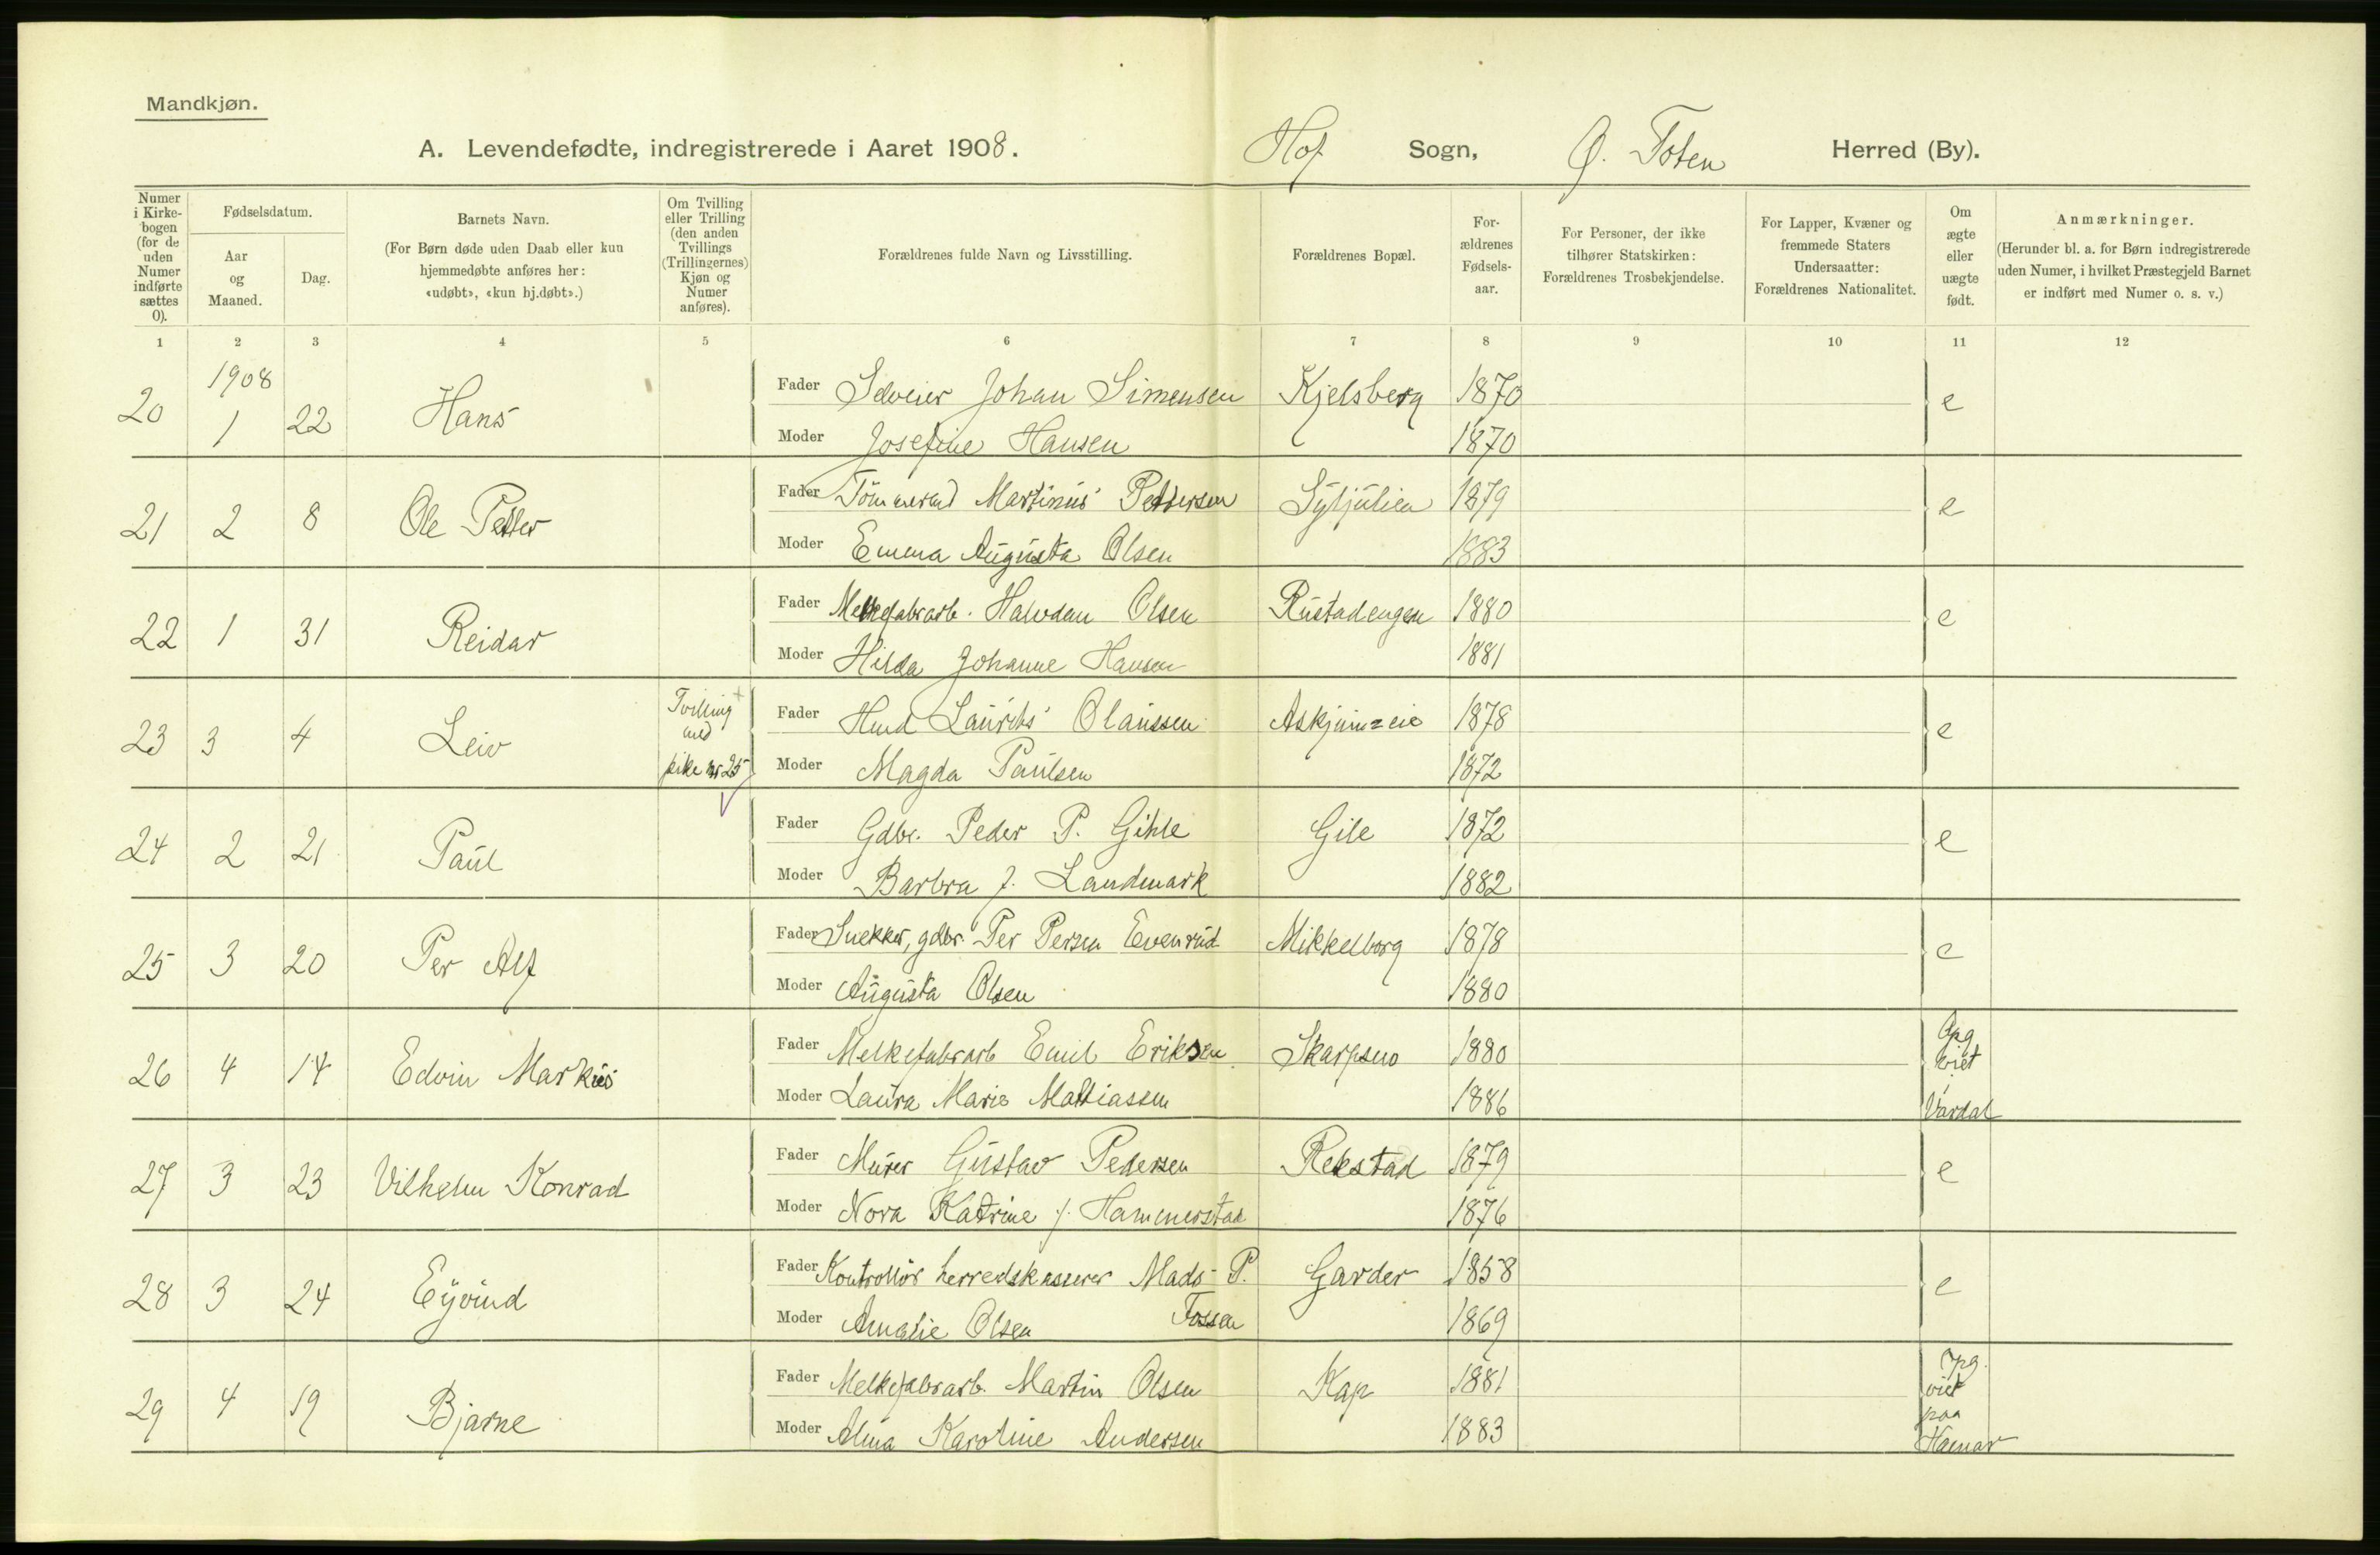 Mandkjøn.
A. Levendefødte, indregistrerede i Aaret 1908. Hof Sogn, Ø. Toten Herred (By).
Numer i Kirke-bogen (for de uden Numer indførte sættes 0).
Fødselsdatum.
Aar og Maaned.
Dag.
Barnets Navn.
(For Børn døde uden Daab eller kun hjemmedøbte anføres her: «udøbt», «kun hj.døbt».)
Om Tvilling eller Trilling (den anden Tvillings (Trillingernes) Kjøn og Numer anføres).
Forældrenes fulde Navn og Livsstilling.
Forældrenes Bopæl.
For-ældrenes Fødsels-aar.
For Personer, der ikke tilhører Statskirken: Forældrenes Trosbekjendelse.
For Lapper, Kvæner og fremmede Staters Undersaatter: Forældrenes Nationalitet.
Om ægte eller uægte født.
Anmærkninger.
(Herunder bl. a. for Børn indregistrerede uden Numer, i hvilket Præstegjeld Barnet er indført med Numer o. s. v.)
1 2 3 4 5 6 7 8 9 10 11 12
1908
20 1 22 Hans Fader Johan Simensen Kjelsberg 1870 e
Moder Josefine Hansen 1870
21 2 8 Ole Petter Fader Tømmermd Martinus Pettersen 1879 e
Moder Emma Augusta Olsen 1883
22 1 31 Reidar Fader Melkefabrarb. Halvdan Olsen Rustadengen 1880 e
Moder Hilda Johanne Hansen 1881
23 3 4 Leiv Tvilling med pike nr 25 Fader Hmd Laurits Olaussen Askjumseie 1878 e
Moder Magda Paulsen 1872
24 2 21 Paul Fader Gdbr. Peder P. Gihle Gile 1872 e
Moder Barbra f. Landmark 1882
25 3 20 Per Alf Fader Snekker, gdbr. Per Persen Evenrud Mikkelborg 1878 e
Moder Augusta Olsen 1880
26 4 14 Edvin Markus Fader Melkefabrarb Emil Eriksen Skarpsno 1880 Opg viet i Vardal
Moder Laura Marie Mattiassen 1886
27 3 23 Vilhelm Konrad Fader Murer Gustav Pedersen Rekstad 1879 e
Moder Nora Katrine f. Hammerstad 1876
28 3 24 Eyvind Fader Kontrollør herredskasserer Mads P. Garder 1858 e
Moder Amalie Olsen Fossen 1869
29 4 19 Bjarne Fader Melkefabrarb. Martin Olsen Kap 1881 opg. viet paa Hamar
Moder Alma Karoline Andersen 1883